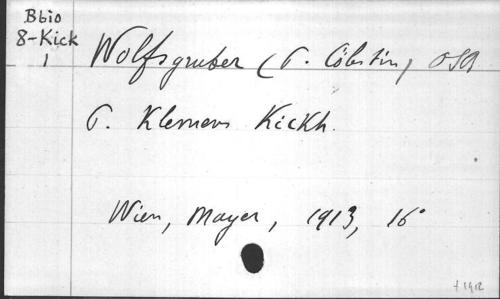 Bbio
8-Kick
1
Wolfsgruber (P. Cölestin) OSB
P. Klemens Kickh.
Wien, Mayer, 1913, 16°
† 1912